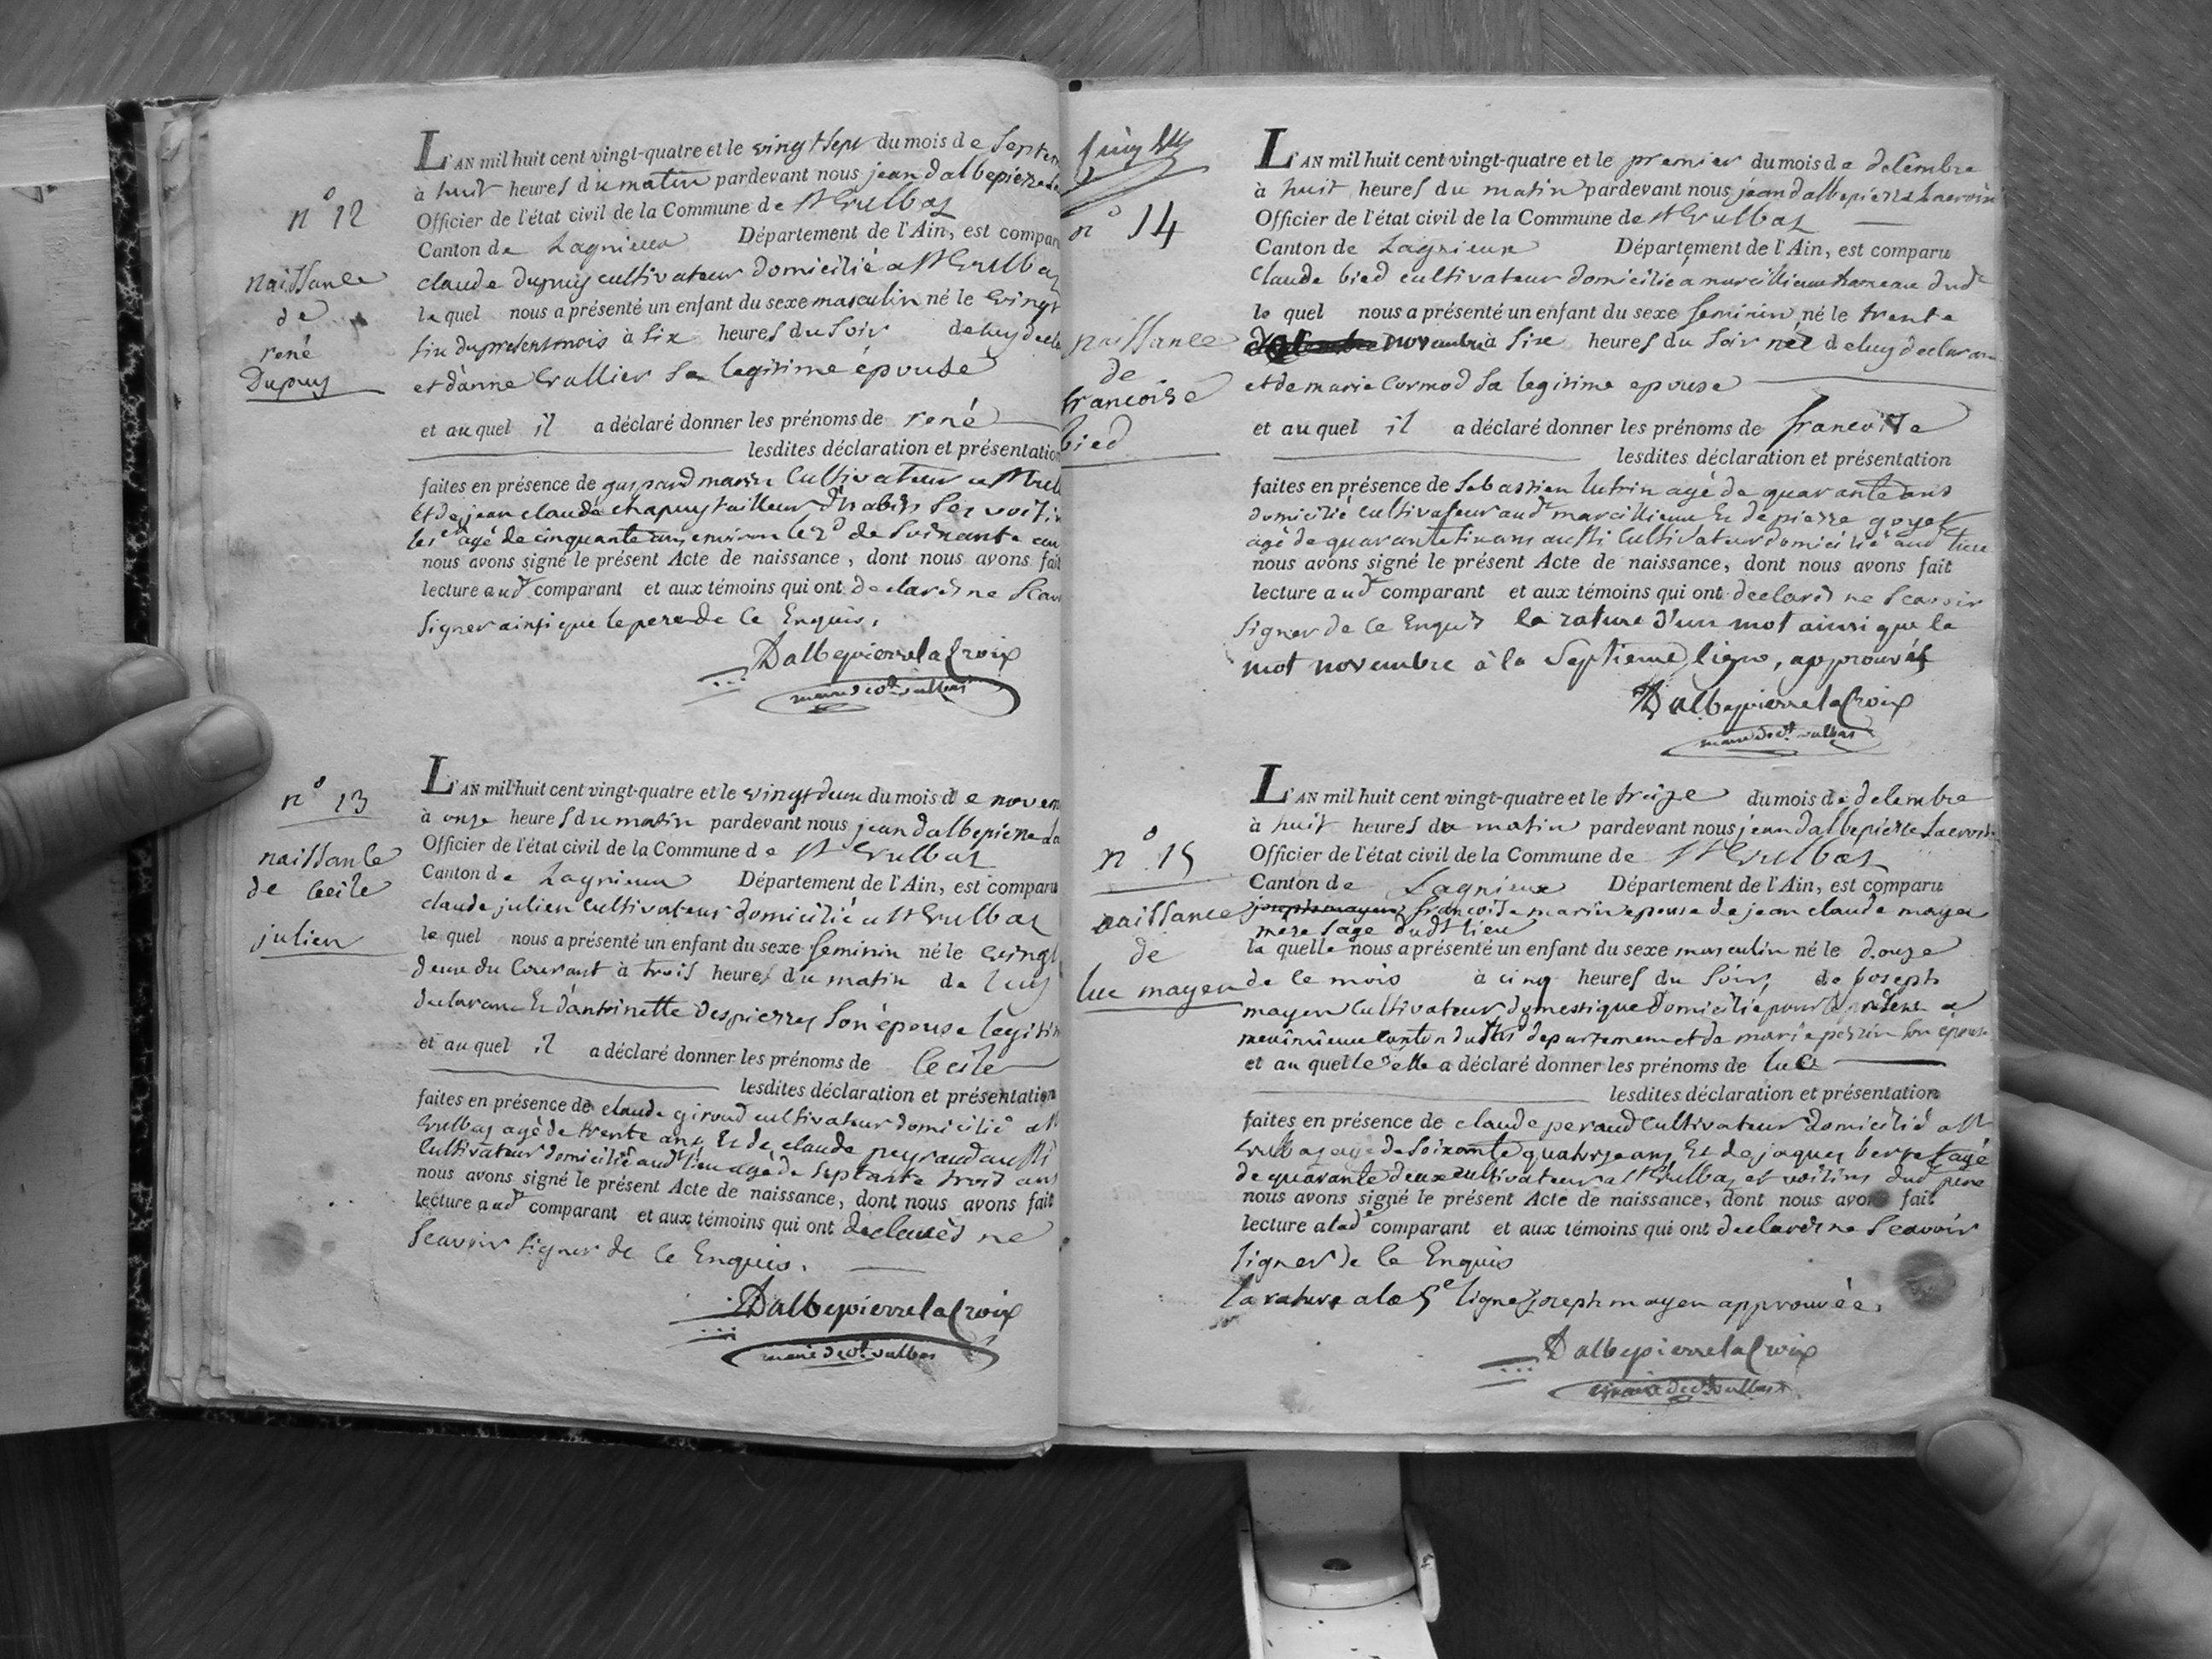 n° 12
naissance
de
rené
Dupuy
L'AN mil huit cent vingt-quatre et le vingt sept du mois de Septem
à huit heures du matin pardevant nous jean dalbepierre La
Officier de l'état civil de la Commune de St Vulbas
Canton de Lagnieux Département de l'Ain, est compar
claude dupuy cultivateur domicilié a St Vulbaz
le quel nous a présenté un enfant du sexe masculin né le vingt
six du present mois à six heures du Soir de luy decla
et d'anne Vullier Sa legitime épouse
et au quel il a déclaré donner les prénoms de rené
lesdites déclaration et présentation
faites en présence de gaspard marin Cultivateur a St Vulb
et de jean claude chapuy tailleur d'habits Ses voisin
le 1er agé de cinquante ans environ le 2d de Soixante an
nous avons signé le présent Acte de naissance, dont nous avons fait
lecture aud comparant et aux témoins qui ont declarés ne Scav
Signer ainsi que le pere de ce Enquis.
DalbepierrelaCroix
maire de St vulbas
n° 13
naissance
de Cecile
julien
L'AN mil huit cent vingt-quatre et le vingt deux du mois de novem
à onze heures du matin pardevant nous jean dalbepierre La
Officier de l'état civil de la Commune de St Vulbas
Canton de Lagnieux Département de l'Ain, est comparu
claude julien cultivateur domicilié a St Vulbaz
le quel nous a présenté un enfant du sexe feminin né le vingt
deux du Courant à trois heures du matin de luy
declarant Et d'antoinette Despierres Son épouse legitim
et au quel il a déclaré donner les prénoms de Cecile
lesdites déclaration et présentation
faites en présence de claude giroud cultivateur domicilié a St
Vulbaz agé de trente ans Et de claude peyraud aussi
Cultivateur domicilié aud lieu agé de Septante trois ans
nous avons signé le présent Acte de naissance, dont nous avons fait
lecture aud comparant et aux témoins qui ont declarés ne
Scavoir Signer de ce Enquis.
DalbepierrelaCroix
maire de St vulbas
n° 14
naissance
de
francoise
bied
L'AN mil huit cent vingt-quatre et le premier du mois de decembre
à huit heures du matin pardevant nous jean dalbepierre Lacroix
Officier de l'état civil de la Commune de St Vulbaz
Canton de Lagnieux Département de l'Ain, est comparu
Claude bied cultivateur domicilié a marcillieux hameau dud
le quel nous a présenté un enfant du sexe feminin né le trente
novembre à six heures du Soir né de luy declaran
et de marie Cormod Sa legitime epouse
et au quel il a déclaré donner les prénoms de francoise
lesdites déclaration et présentation
faites en présence de Sebastien lutrin agé de quarante ans
domicilié cultivateur aud marcillieux Et de pierre goyet
agé de quarante six ans aussi Cultivateur domicilié aud lieu
nous avons signé le présent Acte de naissance, dont nous avons fait
lecture aud comparant et aux témoins qui ont declarés ne Scavoir
Signer de ce Enquis la rature d'un mot ainsi que le
mot novembre à la Septieme ligne, approuvés
DalbepierrelaCroix
maire de St vulbas
n° 15
naissance
de
luc mayen
L'AN mil huit cent vingt-quatre et le treize du mois de decembre
à huit heures du matin pardevant nous jean dalbepierre Lacroix
Officier de l'état civil de la Commune de St Vulbas
Canton de Lagnieux Département de l'Ain, est comparu
joseph mayen francoise marin epouse de jean claude mayen
mere Sage dudt lieu
la quelle nous a présenté un enfant du sexe masculin né le douze
de ce mois à cinq heures du Soir, de joseph
mayen Cultivateur domestique domicilié pour le present a
canton dudit departement et de marie perrin Son épouse
et au quel elle a déclaré donner les prénoms de luc
lesdites déclaration et présentation
faites en présence de claude peraud Cultivateur domicilié a St
Vulbaz agé de Soixante quatorze ans Et de jaques berge agé
de quarante deux cultivateur a St Vulbaz et voisins dud pere
nous avons signé le présent Acte de naissance, dont nous avons fait
lecture a lad comparant et aux témoins qui ont declarés ne Scavoir
Signer de ce Enquis
la rature a la 5e ligne joseph mayen approuvée.
DalbepierrelaCroix
maire de St vulbas